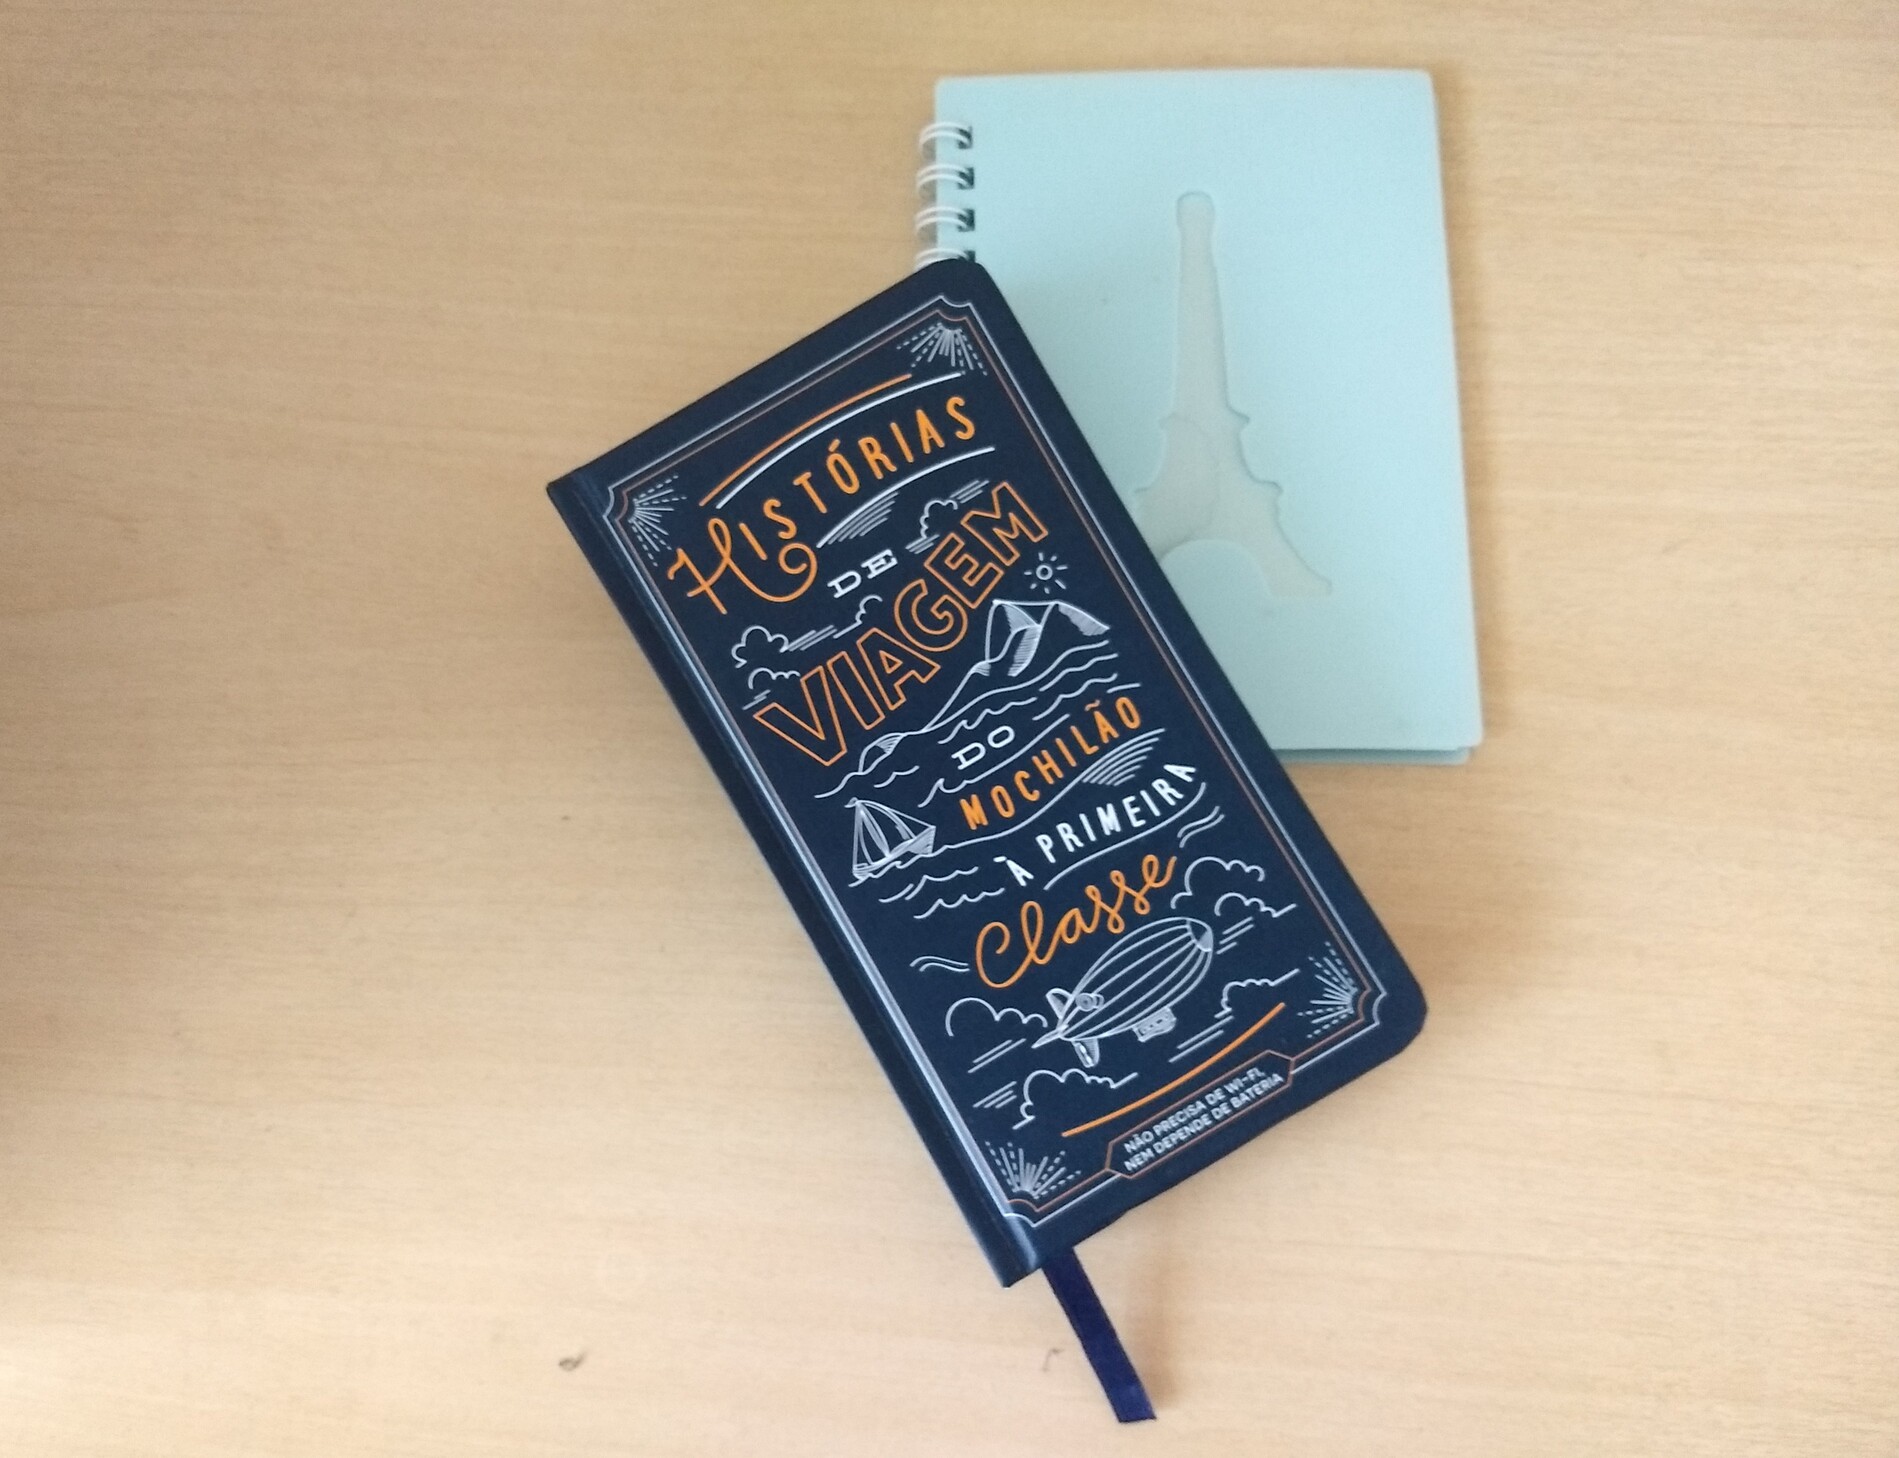 HISTÓRIAS
DE
VIAGEM
DO
MOCHILÃO
À PRIMEIRA
Classe
NÃO PRECISA DE WI-FI,
NEM DEPENDE DE BATERIA